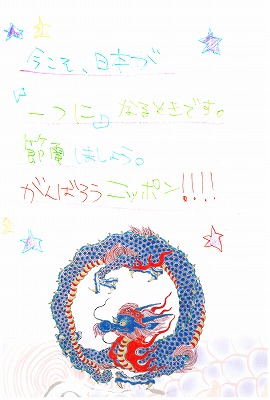 今こそ、日本が
一つになるときです。
節電しましょう。
がんばろうニッポン!!!!